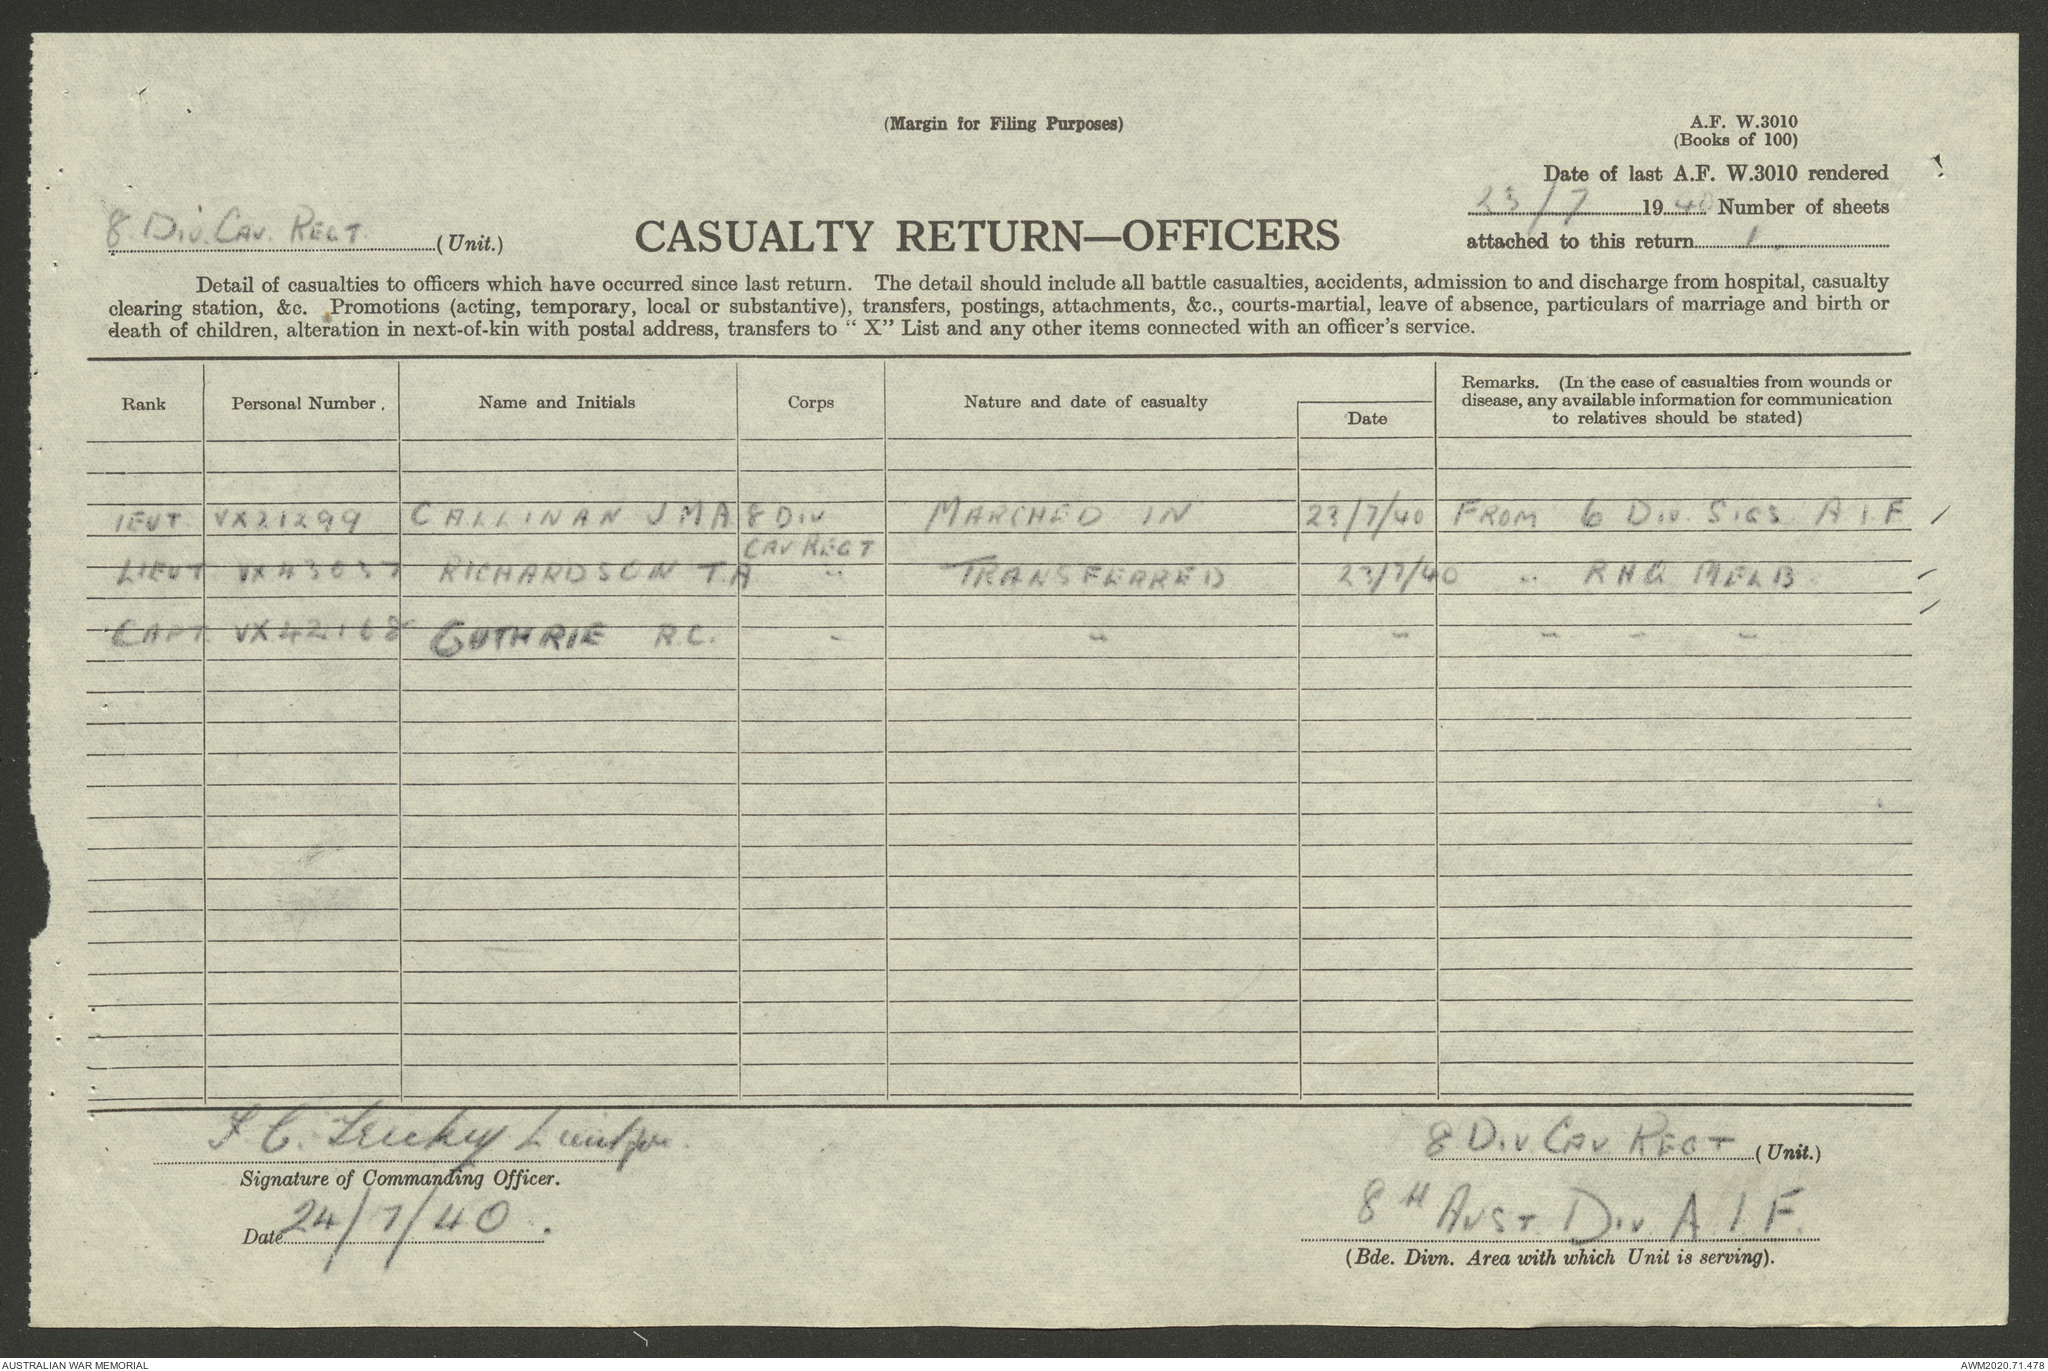 (Margin for Filing Purposes)
A.F. W.3010
(Books of 100)
Date of last A.F. W.3010 rendered
23/7 1940 Number of sheets
attached to this return 1.
8 Div. Cav. Regt. (Unit.)
CASUALTY RETURN—OFFICERS
Detail of casualties to officers which have occurred since last return. The detail should include all battle casualties, accidents, admission to and discharge from hospital, casualty
clearing station, &c. Promotions (acting, temporary, local or substantive), transfers, postings, attachments, &c., courts-martial, leave of absence, particulars of marriage and birth or
death of children, alteration in next-of-kin with postal address, transfers to " X" List and any other items connected with an officer's service.
Rank Personal Number. Name and Initials Corps Nature and date of casualty Date Remarks. (In the case of casualties from wounds or
disease, any available information for communication
to relatives should be stated)
IEUT. VX21299 CALLINAN J M A 8 DIV MARCHED IN 23/7/40 FROM 6 DIV. SIGS A.I.F
CAV REGT
LIEUT. VX43037 RICHARDSON T.A " TRANSFERRED 23/7/40 " RHQ MELB.
CAPT. VX42168 GUTHRIE R.C. " " " " " "
F C. Lieut for
Signature of Commanding Officer.
Date 24/7/40.
8 DIV CAV REGT (Unit.)
8 H AUST. DIV. A.I.F.
(Bde. Divn. Area with which Unit is serving).
AUSTRALIAN WAR MEMORIAL
AWM2020.71.478